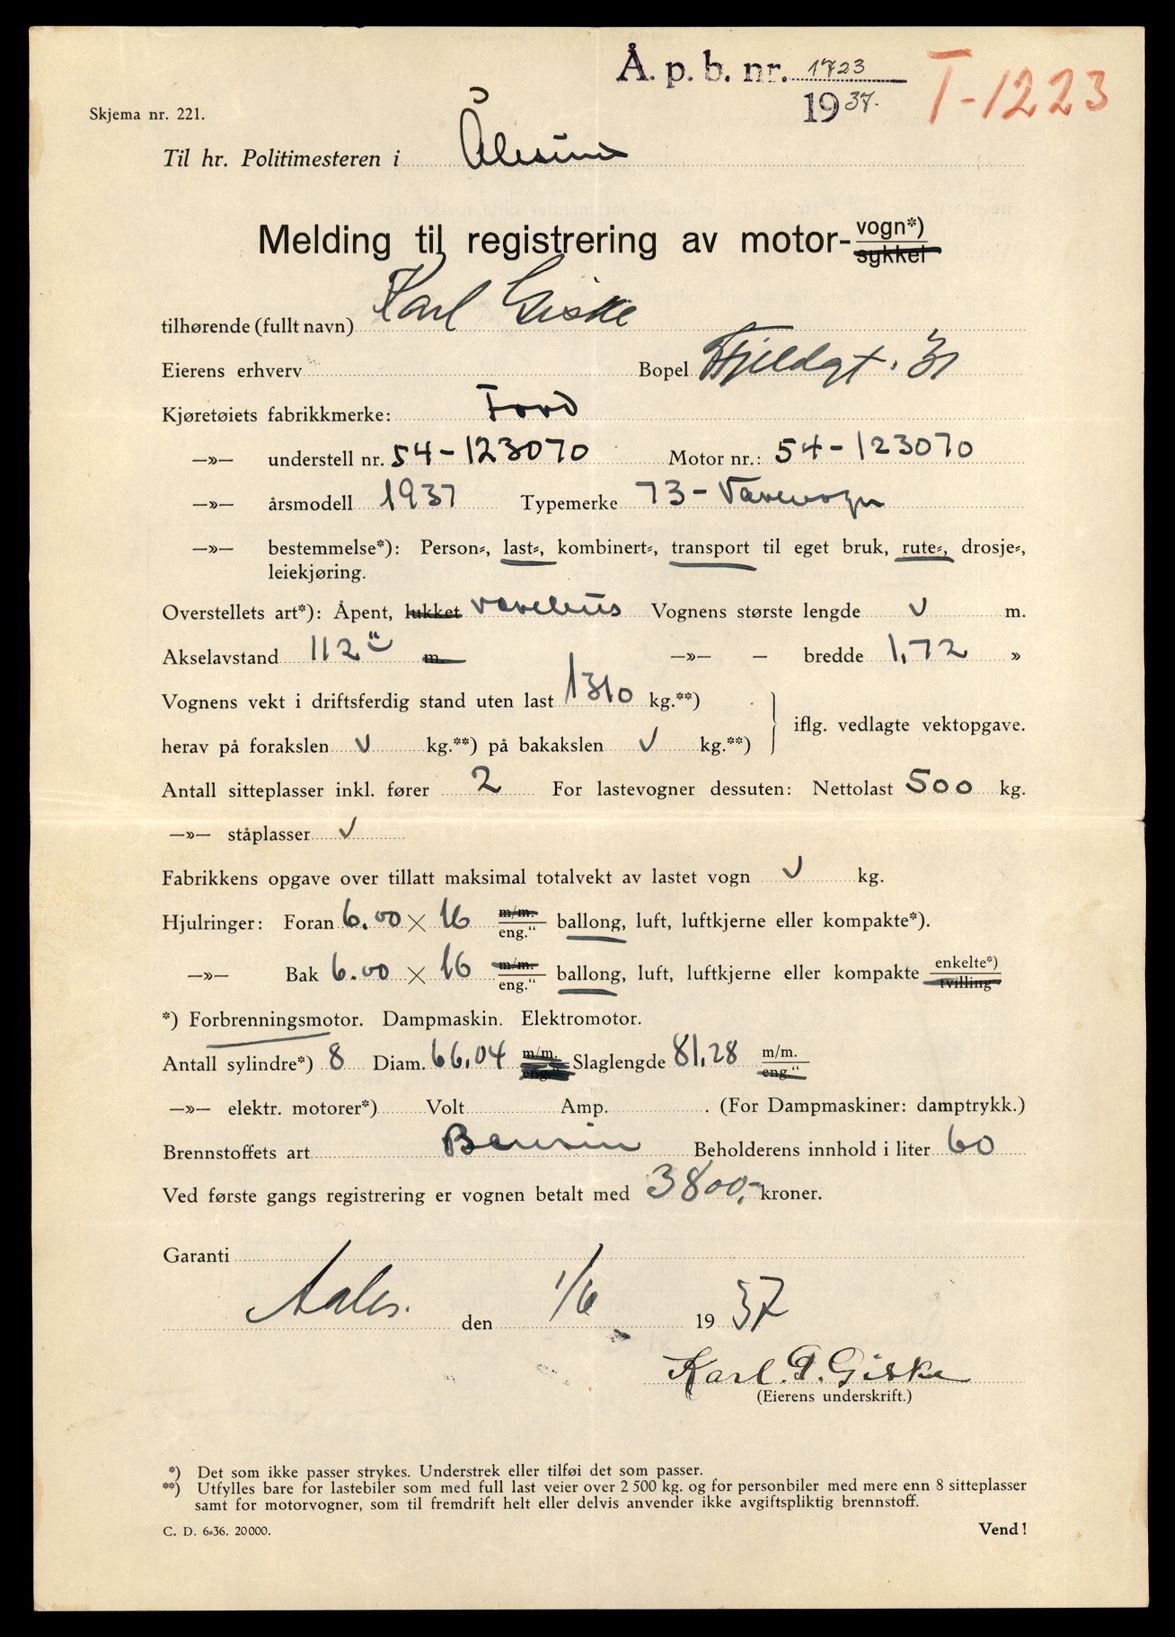 Å. p. b. nr. 1723
1937.
T-1223
Skjema nr. 221.
Til hr. Politimesteren i Ålesund
Melding til registrering av motor-vogn*)
sykkel
tilhørende (fullt navn) Karl Giske
Eierens erhverv Bopel Fjeldgt. 31
Kjøretøiets fabrikkmerke: Ford
—»— understell nr. 54-123070 Motor nr.: 54-123070
—»— årsmodell 1937 Typemerke 73-Varevogn
—»— bestemmelse*): Person-, last-, kombinert-, transport til eget bruk, rute-, drosje-,
leiekjøring.
Overstellets art*): Åpent, lukket varehus Vognens største lengde √ m.
Akselavstand 112" m —»— — bredde 1,72 »
Vognens vekt i driftsferdig stand uten last 1310 kg.**)
iflg. vedlagte vektopgave.
herav på forakslen √ kg.**) på bakakslen √ kg.**)
Antall sitteplasser inkl. fører 2 For lastevogner dessuten: Nettolast 500 kg.
—»— ståplasser √
Fabrikkens opgave over tillatt maksimal totalvekt av lastet vogn √ kg.
Hjulringer: Foran 6.00 × 16 m/m. eng.“ ballong, luft, luftkjerne eller kompakte*).
—»— Bak 6.00 × 16 m/m. eng.“ ballong, luft, luftkjerne eller kompakte enkelte*) tvilling
*) Forbrenningsmotor. Dampmaskin. Elektromotor.
Antall sylindre*) 8 Diam. 66,04 m/m. eng.“ Slaglengde 81,28 m/m. eng.“
—»— elektr. motorer*) Volt Amp. . (For Dampmaskiner: damptrykk.)
Brennstoffets art Bensin Beholderens innhold i liter 60
Ved første gangs registrering er vognen betalt med 3800,- kroner.
Garanti
Aales. den 1/6 1937
Karl. P. Giske
(Eierens underskrift.)
*) Det som ikke passer strykes. Understrek eller tilføi det som passer.
**) Utfylles bare for lastebiler som med full last veier over 2 500 kg. og for personbiler med mere enn 8 sitteplasser
samt for motorvogner, som til fremdrift helt eller delvis anvender ikke avgiftspliktig brennstoff.
C. D. 6-36. 20 000.
Vend!